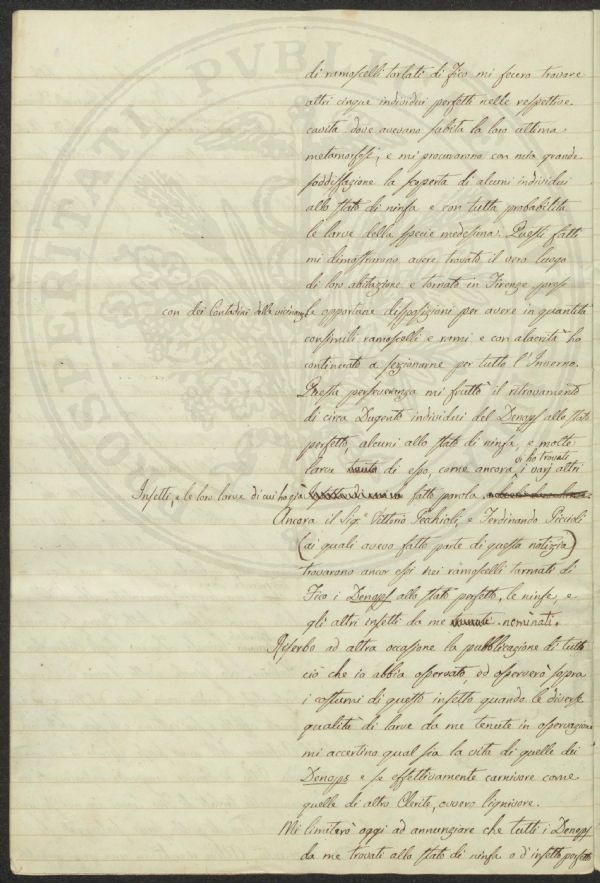 di ramoscelli tarlati di Fico mi fecero trovare
altri cinque individui perfetti nelle respettive
cavità dove avevano subita la loro ultima
metamorfosi, e mi procurarono con mia grande
soddisfazione la scoperta di alcuni individui
allo stato di ninfa e con tutta probabilità
le larve della specie medesima. Questi fatti
mi dimostrarono avere trovato il vero luogo
di loro abitazione e tornato in Firenze presi
con dei Contadini delle vicinanze le opportune disposizioni per avere in quantità
consimili ramoscelli e rami e con alacrità ho
continuato a sezionarne per tutto l'Inverno.
Questa perseveranza mi fruttò il ritrovamento
di circa Dugento individui del Denops allo stato
perfetto, alcuni allo stato di ninfa, e molte
vi ho trovati
larve di esso, come ancora, i varj altri
Insetti, e le loro larve di cui ho già fatto parola
Ancora il Sigr. Vittorio Pecchioli, e Ferdinando Piccioli
(ai quali avevo fatto parte di questa notizia)
trovarono ancor essi nei ramoscelli tarmati di
Fico i Denops allo stato perfetto, le ninfe, e
gli altri insetti da me nominati.
Riserbo ad altra occasione la pubblicazione di tutto
ciò che io abbia osservato, ed osserverò sopra
i costumi di questo insetto quando le diverse
qualità di larve da me tenute in osservazione
mi accertino qual sia la vita di quelle dei
Denops e se effettivamente carnivore come
quelle di altro Clerite, ovvero lignivore.
Mi limiterò oggi ad annunziare che tutti i Denops
da me trovati allo stato di ninfa o d'insetto perfetto